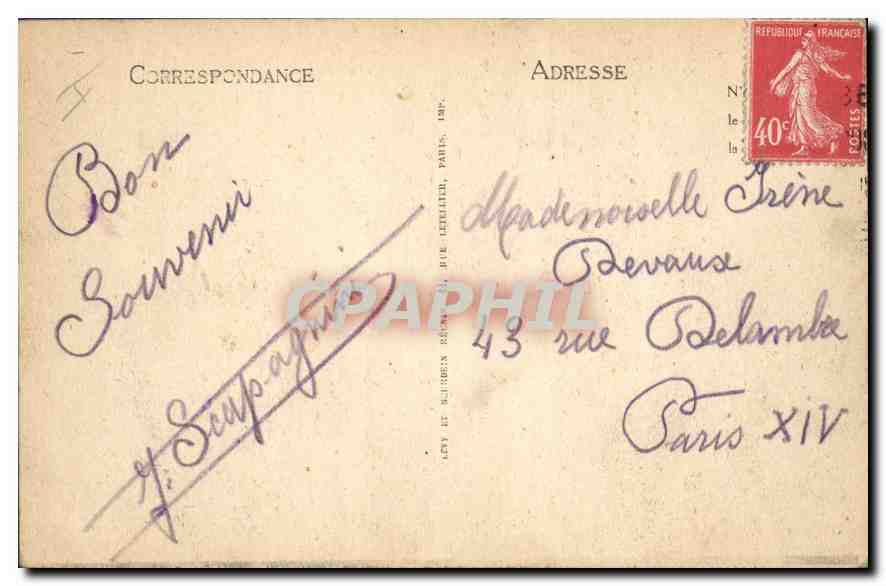 CORRESPONDANCE
ADRESSE
REPUBLIQUE FRANÇAISE
40c
POSTES
Bon
Souvenir
LÉVY ET NEURDEIN RÉUNIS 44, RUE LETELLIER, PARIS. IMP.
Mademoiselle Irène
Devaux
43 rue Delambre
Paris XIV
CPAPHIL